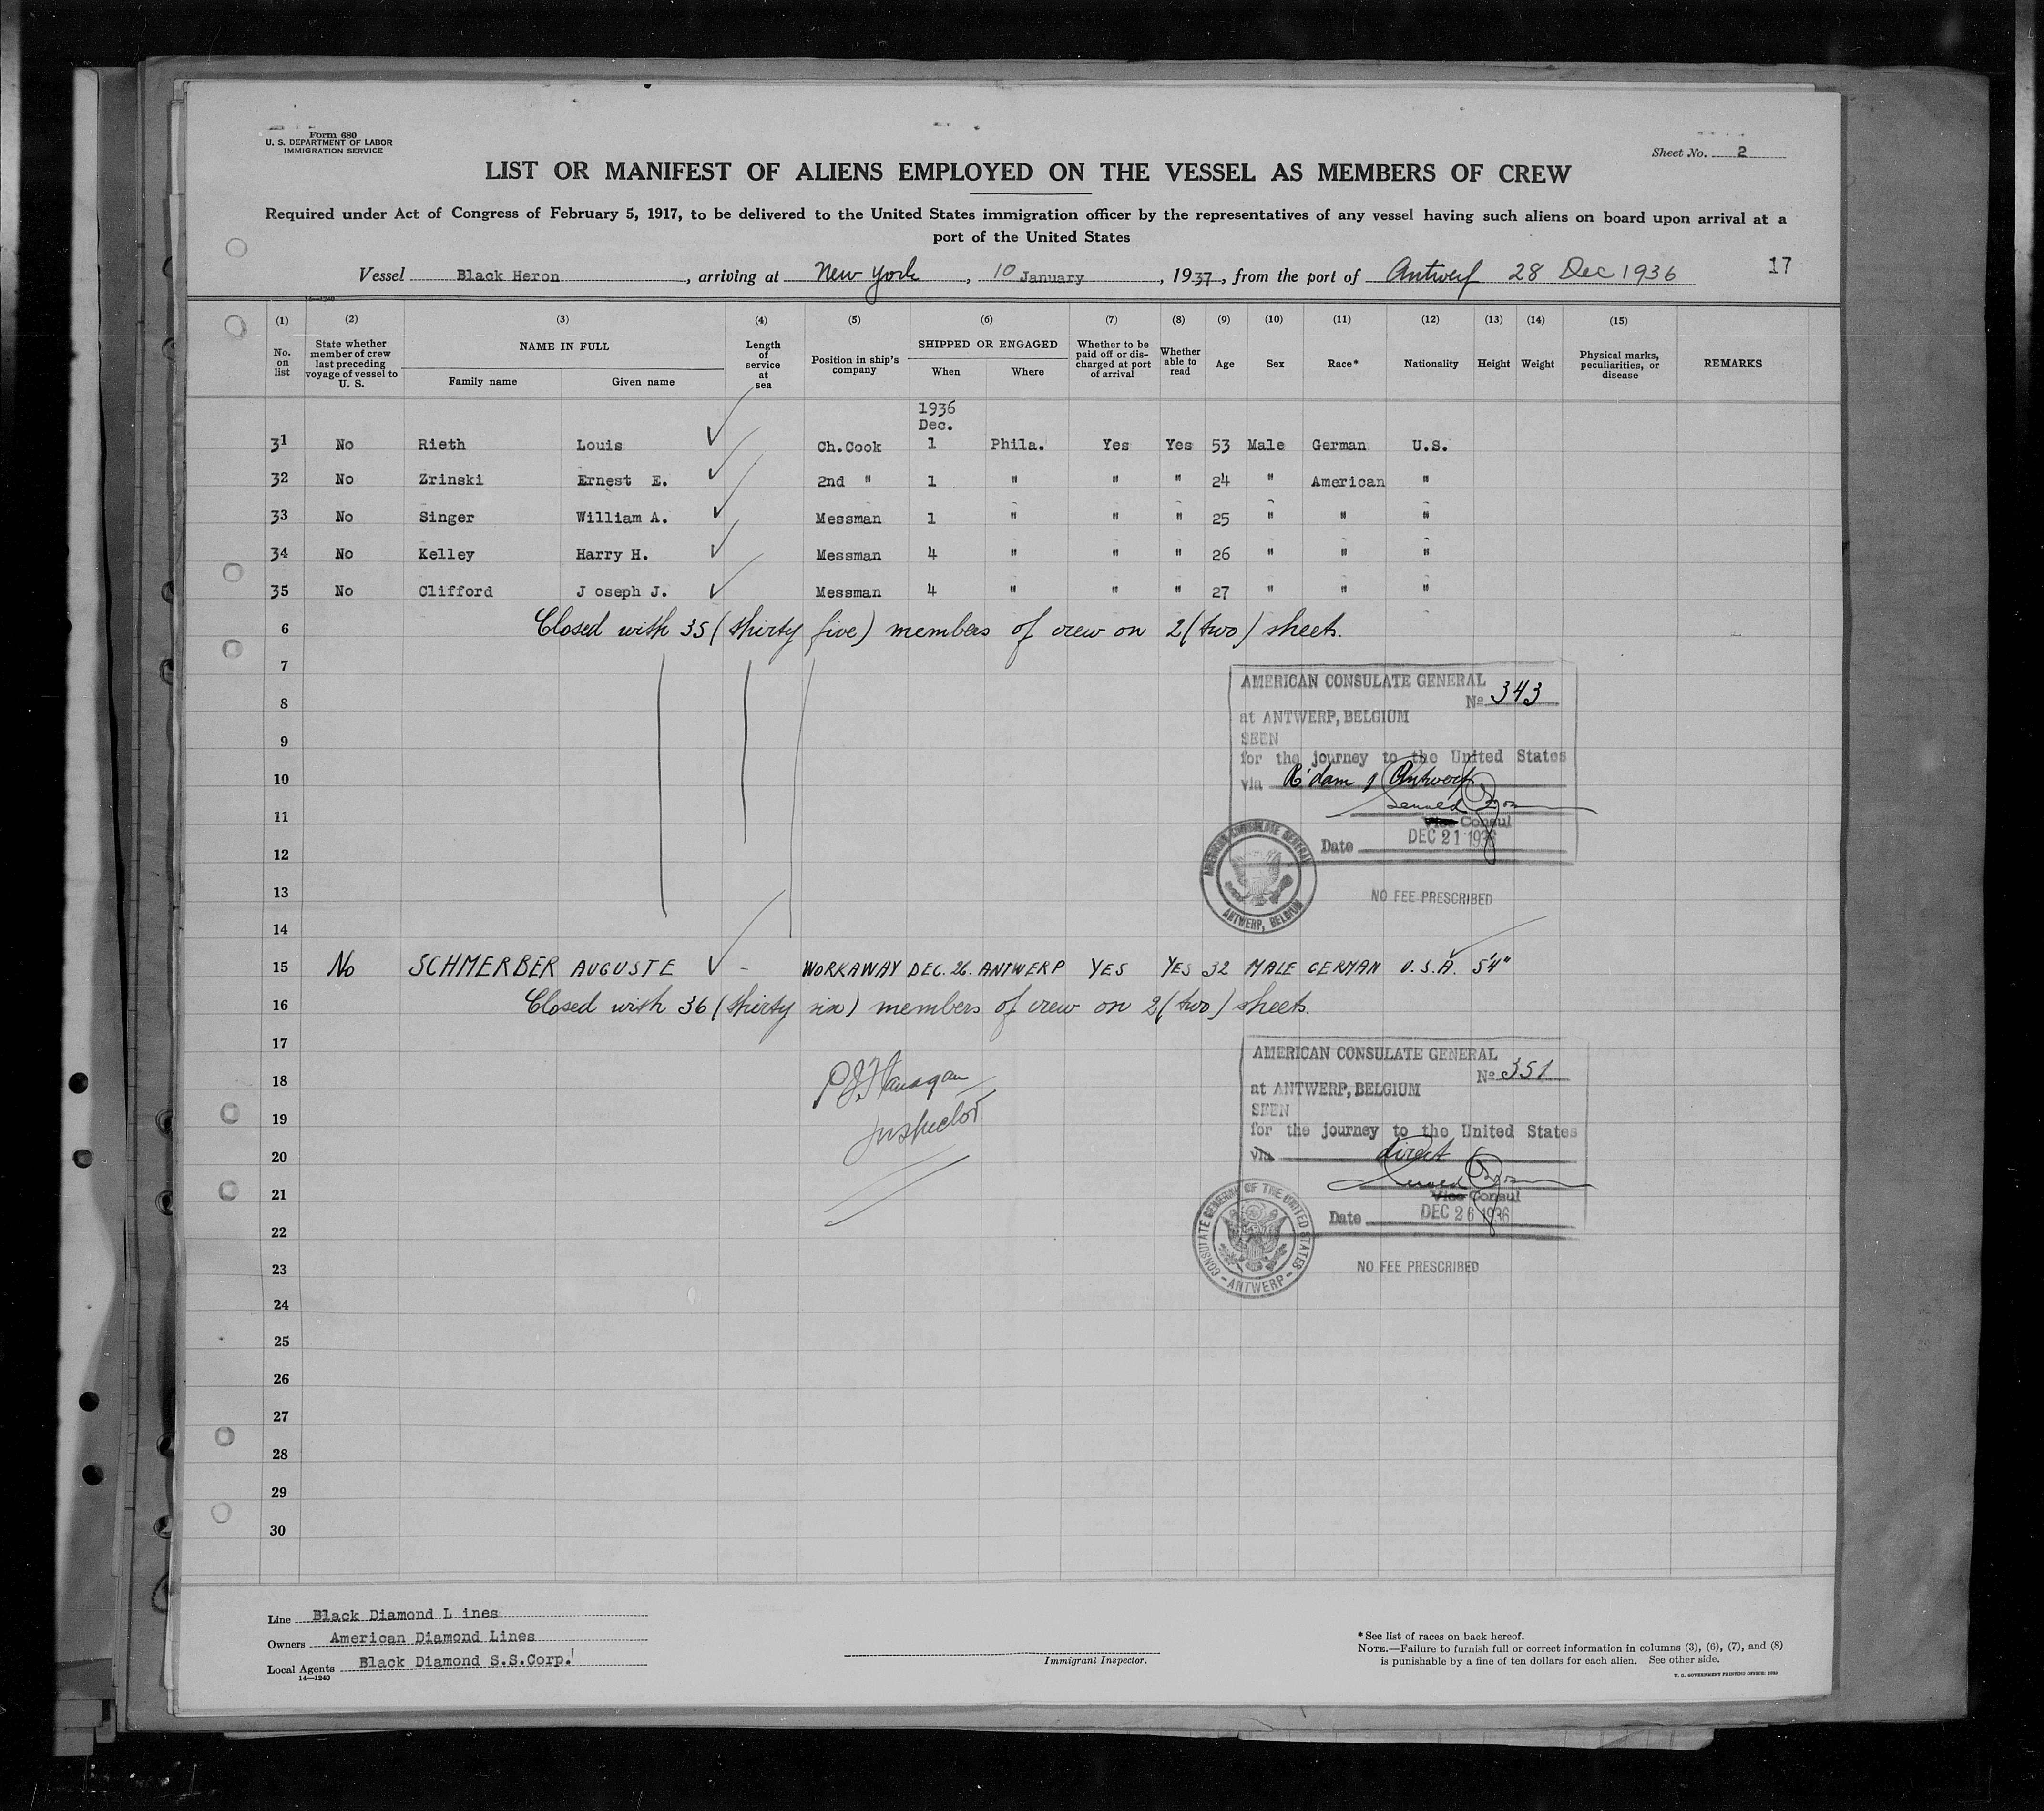 Form 680
U. S. DEPARTMENT OF LABOR
IMMIGRATION SERVICE
Sheet No. 2
LIST OR MANIFEST OF ALIENS EMPLOYED ON THE VESSEL AS MEMBERS OF CREW
Required under Act of Congress of February 5, 1917, to be delivered to the United States immigration officer by the representatives of any vessel having such aliens on board upon arrival at a
port of the United States
Vessel Black Heron, arriving at New York, 10 January, 1937, from the port of Antwerp 28 Dec 1936 17
(1) (2) (3) (4) (5) (6) (7) (8) (9) (10) (11) (12) (13) (14) (15)
No. on list
State whether member of crew last preceding voyage of vessel to U. S.
NAME IN FULL
Family name Given name
Length of service at sea
Position in ship's company
SHIPPED OR ENGAGED
When Where
Whether to be paid off or discharged at port of arrival
Whether able to read
Age Sex Race* Nationality Height Weight
Physical marks, peculiarities, or disease
REMARKS
1936
Dec.
31 No Rieth Louis Ch.Cook 1 Phila. Yes Yes 53 Male German U.S.
32 No Zrinski Ernest E. 2nd " 1 " " " 24 " American "
33 No Singer William A. Messman 1 " " " 25 " " "
34 No Kelley Harry H. Messman 4 " " " 26 " " "
35 No Clifford J oseph J. Messman 4 " " " 27 " " "
6 Closed with 35 (thirty five) members of crew on 2 (two) sheets.
7
8
9
10
11
12
13
14
AMERICAN CONSULATE GENERAL
No 343
at ANTWERP, BELGIUM
SEEN
for the journey to the United States
via R'dam Antwerp
Vice Consul
Date DEC 21 1936
AMERICAN CONSULATE GENERAL
ANTWERP, BELGIUM
NO FEE PRESCRIBED
15 No SCHMERBER AUGUSTE - WORKAWAY DEC. 26. ANTWERP YES YES 32 MALE GERMAN U.S.A. 5'4"
16 Closed with 36 (thirty six) members of crew on 2 (two) sheets.
17
18
19
20
21
22
23
24
25
26
27
28
29
30
P.J. Flanagan
Inspector
AMERICAN CONSULATE GENERAL
No 351
at ANTWERP, BELGIUM
SEEN
for the journey to the United States
via direct
Vice Consul
Date DEC 26 1936
CONSULATE GENERAL OF THE UNITED STATES
- ANTWERP -
NO FEE PRESCRIBED
Line Black Diamond L ines
Owners American Diamond Lines
Local Agents Black Diamond S.S.Corp.
14—1240
Immigrant Inspector.
*See list of races on back hereof.
NOTE.—Failure to furnish full or correct information in columns (3), (6), (7), and (8)
is punishable by a fine of ten dollars for each alien. See other side.